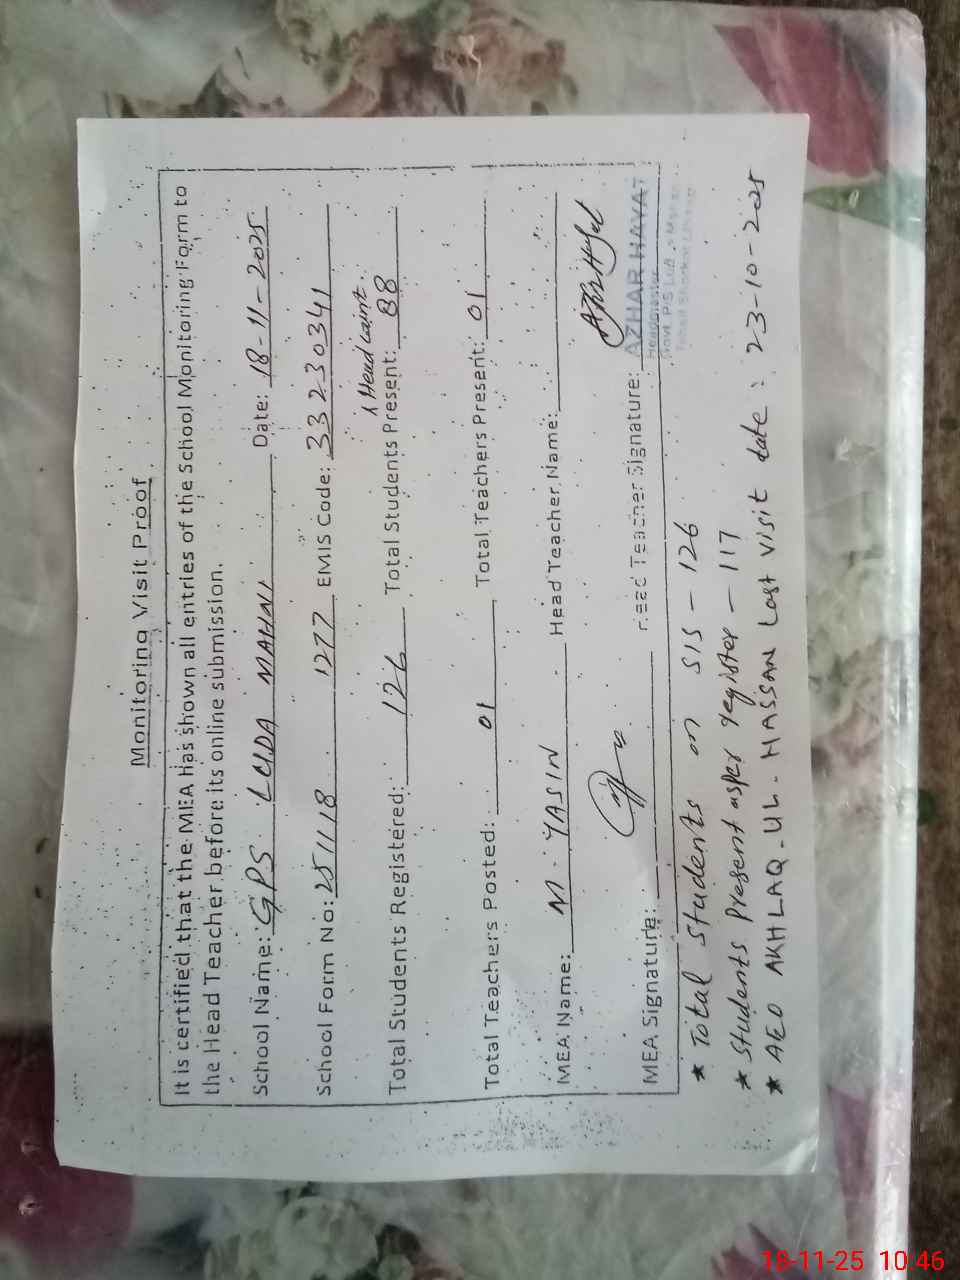 Monitoring Visit Proof
It is certified that the MEA has shown all entries of the School Monitoring Form to
the Head Teacher before its online submission.
School Name: GPS LUDA MAHNI Date: 18-11-2025
School Form No: 251118 1277 EMIS Code: 33230341
Head
Total Students Registered: 126 Total Students Present: 88
Total Teachers Posted: 01 Total Teachers Present: 01
MEA Name: M. YASIN Head Teacher Name:
MEA Signature: Head Teacher Signature:
AZHAR HAYAT
Headmaster
Govt. P/S
* Total students on SIS - 126
* Students Present asper register - 117
* AEO AKHLAQ-UL-HASSAN Last visit date: 23-10-2025
18-11-25 10:46